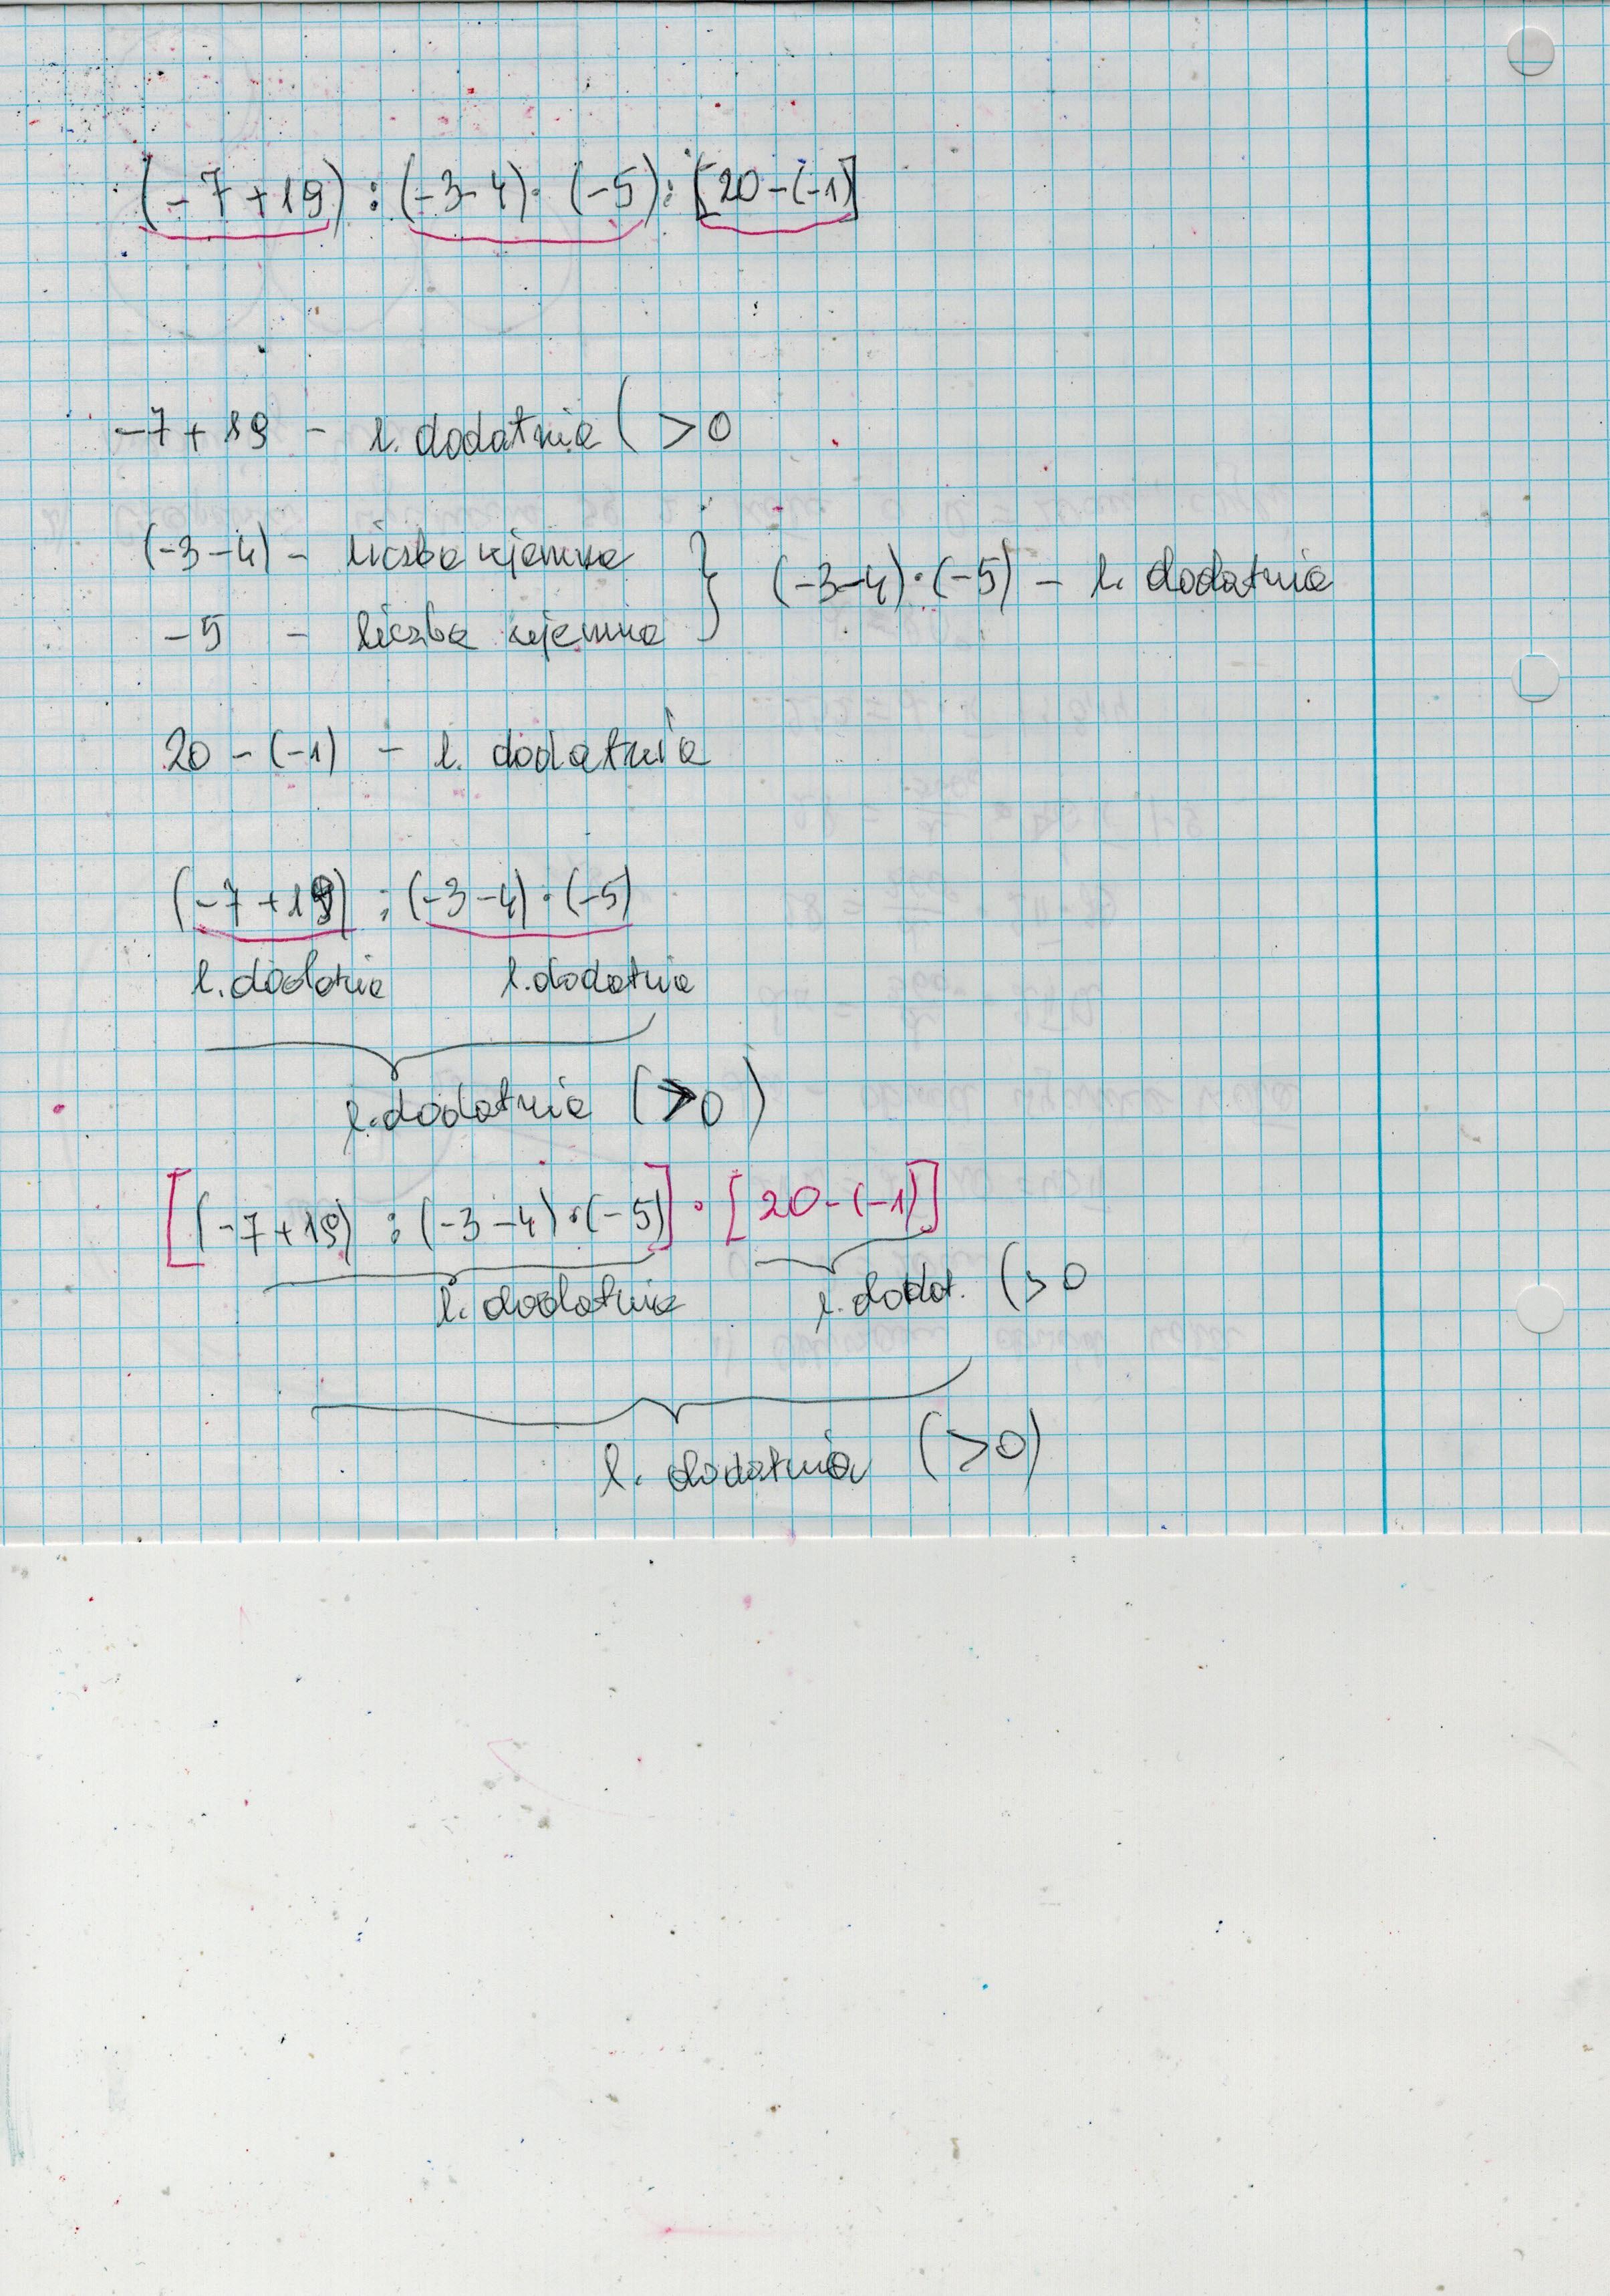 (-7+19) : (-3-4) · (-5) : [20-(-1)]
-7+19 - l. dodatnia ( >0
(-3-4) - liczba ujemna
-5 - liczba ujemna } (-3-4)·(-5) - l. dodatnia
20-(-1) - l. dodatnia
(-7+19) : (-3-4)·(-5)
l. dodatnia l. dodatnia
l. dodatnia (>0)
[(-7+19) : (-3-4)·(-5)] · [20-(-1)]
l. dodatnia l. dodat. (>0
l. dodatnia (>0)